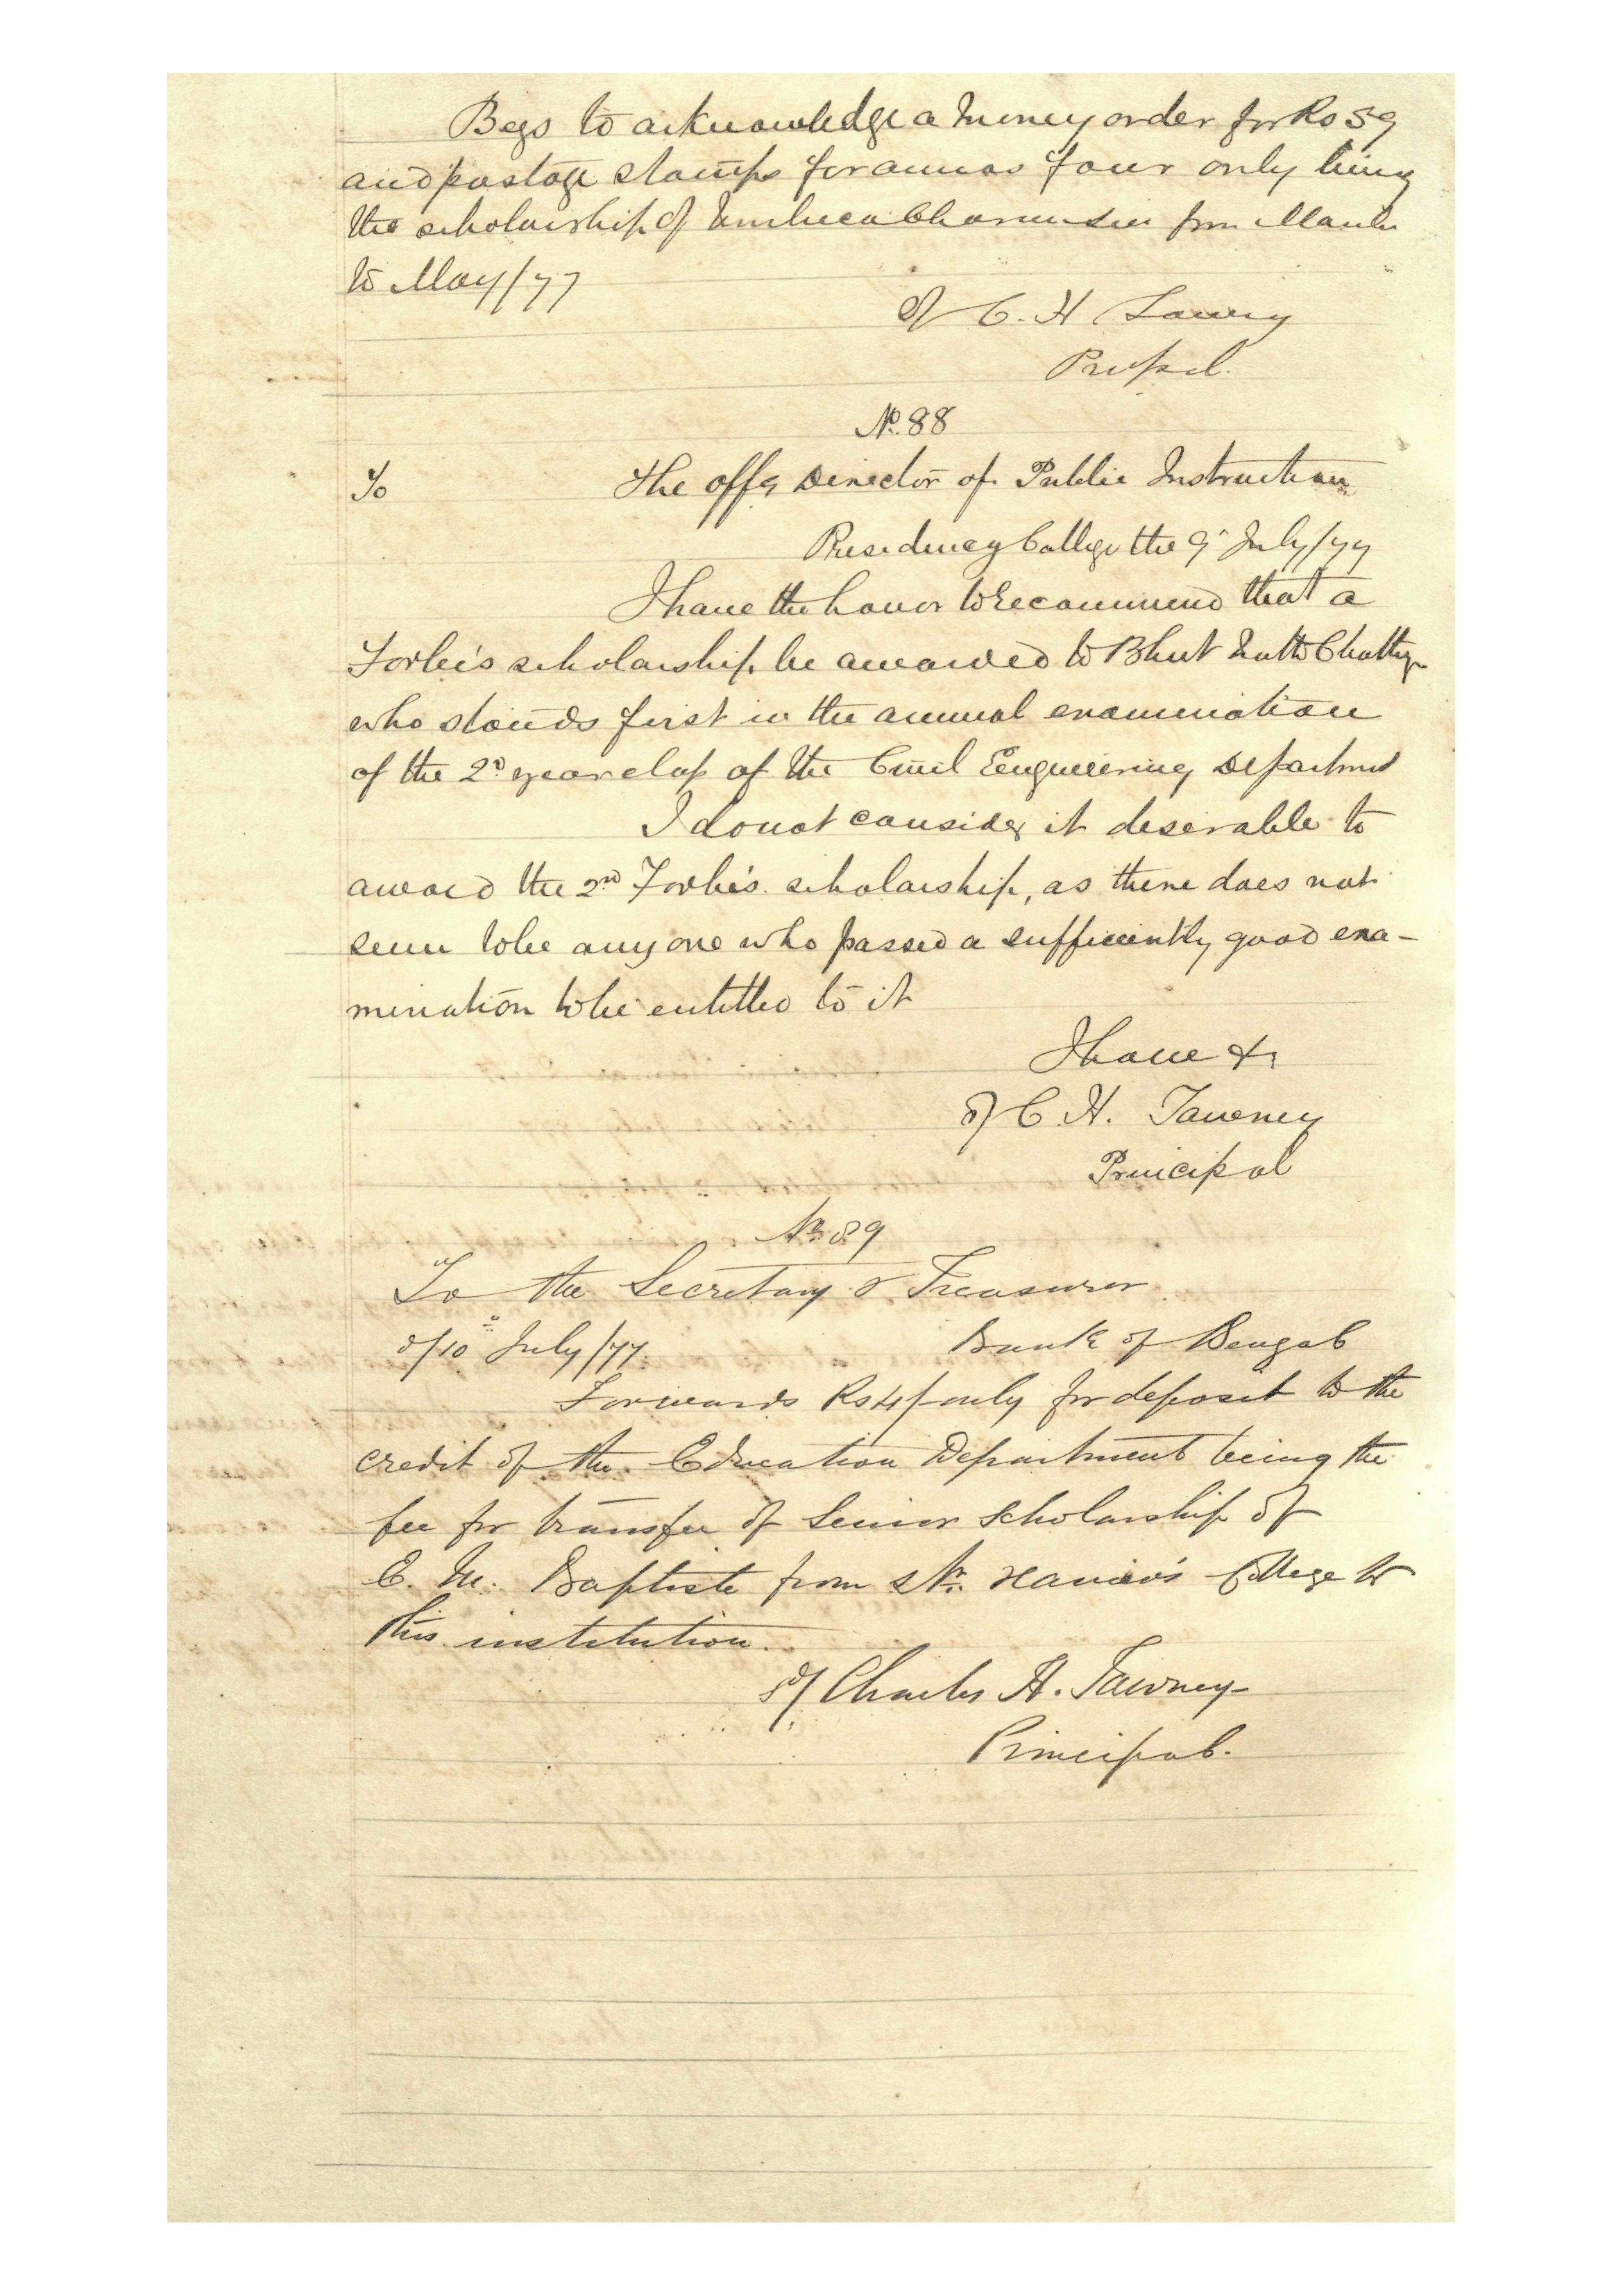 Begs to acknowledge a money order for Rs 59
and postage stamps for annas four only being
the scholarship of Umbica Churn Sen from March
to May/77
Sd/ C. H Tawney
Principal.
No. 88
To The offg Director of Public Instruction
Presidency College the 9th July/77
I have the honor to recommend that a
Forbe's scholarship be awarded to Bhut Nath Chatterje
who stands first in the annual examination
of the 2d year class of the Civil Engineering Department
I do not consider it desirable to
award the 2nd Forbe's scholarship, as there does not
seem to be any one who passed a sufficiently good exa-
mination to be entitled to it
I have &c
Sd/ C. H. Tawney
Principal
No. 89
To the Secretary & Treasurer
d/10th July/77. Bank of Bengal
Forwards Rs 4/- only for deposit to the
credit of the Education Department being the
fee for transfer of Senior Scholarship of
E. M. Baptiste from St. Xavier's College to
this institution.
Sd/ Charles H. Tawney
Principal.